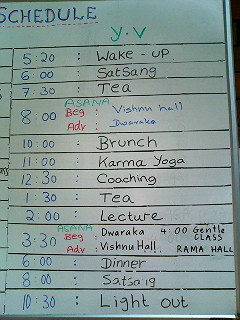 SCHEDULE
Y.V
5:20 : Wake-up
6:00 : SatSang
7:30 : Tea
ASANA
8:00 : Beg : Vishnu hall
Adv : Dwaraka
10.00 : Brunch
11:00 : Karma Yoga
12:30 : Coaching
1:30 : Tea
2:00 : Lecture
ASANA
3.30 Beg : Dwaraka 4:00 Gentle CLASS
Adv : Vishnu Hall RAMA HALL
6:00 : Dinner
8:00 : Satsang
10:30 : Light out